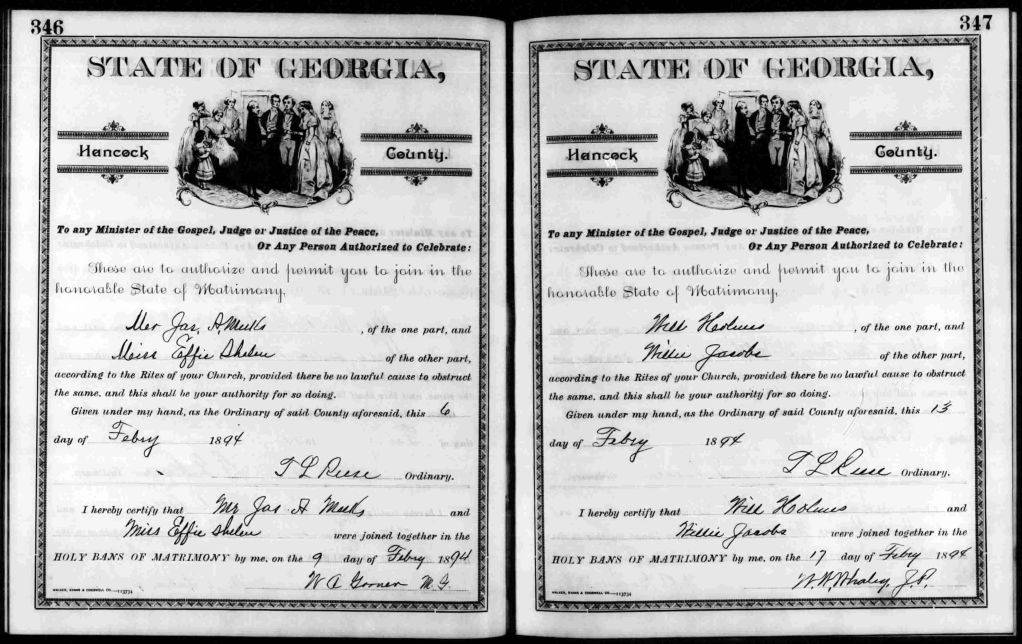 346
STATE OF GEORGIA,
Hancock County.
To any Minister of the Gospel, Judge or Justice of the Peace,
Or Any Person Authorized to Celebrate:
These are to authorize and permit you to join in the
honorable State of Matrimony,
Mer Jas. A. Meeks , of the one part, and
Miss Effie of the other part,
according to the Rites of your Church, provided there be no lawful cause to obstruct
the same, and this shall be your authority for so doing.
Given under my hand, as the Ordinary of said County aforesaid, this 6
day of Febry 1894
T L Reese Ordinary.
I hereby certify that Mr Jas A Meeks and
Miss Effie were joined together in the
HOLY BANS OF MATRIMONY by me, on the 9 day of Febry 1894
W A
WALKER, EVANS & COGSWELL CO.—113734
347
STATE OF GEORGIA,
Hancock County.
To any Minister of the Gospel, Judge or Justice of the Peace,
Or Any Person Authorized to Celebrate:
These are to authorize and permit you to join in the
honorable State of Matrimony,
Will Holmes , of the one part, and
Willie Jacobs of the other part,
according to the Rites of your Church, provided there be no lawful cause to obstruct
the same, and this shall be your authority for so doing.
Given under my hand, as the Ordinary of said County aforesaid, this 13
day of Febry 1894
T L Reese Ordinary.
I hereby certify that Will Holmes and
Willie Jacobs were joined together in the
HOLY BANS OF MATRIMONY by me, on the 17 day of Febry 1894
W. W. Whaley, J.P.
WALKER, EVANS & COGSWELL CO.—113734